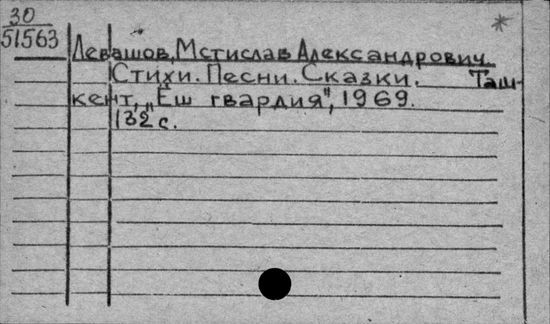 30
51563
Левашов, Мстислав Александрович.
Стихи. Песни. Сказки. Таш-
кент, „Ёш гвардия", 1969.
132 с.